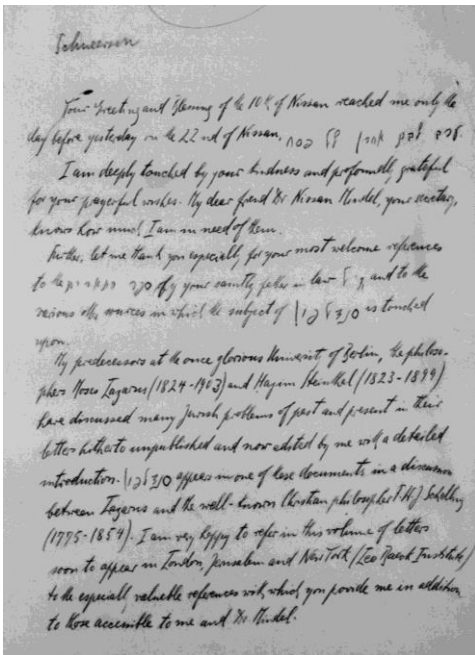 Schneerson
Your Greeting and Blessing of the 10th of Nissan reached me only the
day before yesterday on the 22nd of Nissan, ערב אחרון של פסח.
I am deeply touched by your kindness and profoundly grateful
for your prayerful wishes. My dear friend Dr Nissan Mindel, your secretary,
knows how much I am in need of them.
Further, let me thank you especially for your most welcome references
to the of your saintly father in law and to the
various other sources in which the subject of is touched
upon.
My predecessors at the once glorious University of Berlin, the philoso-
phers Moses Lazarus (1824-1903) and Hayem Steinthal (1823-1899)
have discussed many Jewish problems of past and present in their
letters hitherto unpublished and now edited by me with a detailed
introduction. appears in one of these documents in a discussion
between Lazarus and the well-known Christian philosopher F.W.J Schelling
(1775-1854). I am very happy to refer in this volume of letters
soon to appear in London, Jerusalem and New York (Leo Baeck Institute)
to the especially valuable references with which you provide me in addition
to those accessible to me and Dr Mindel.